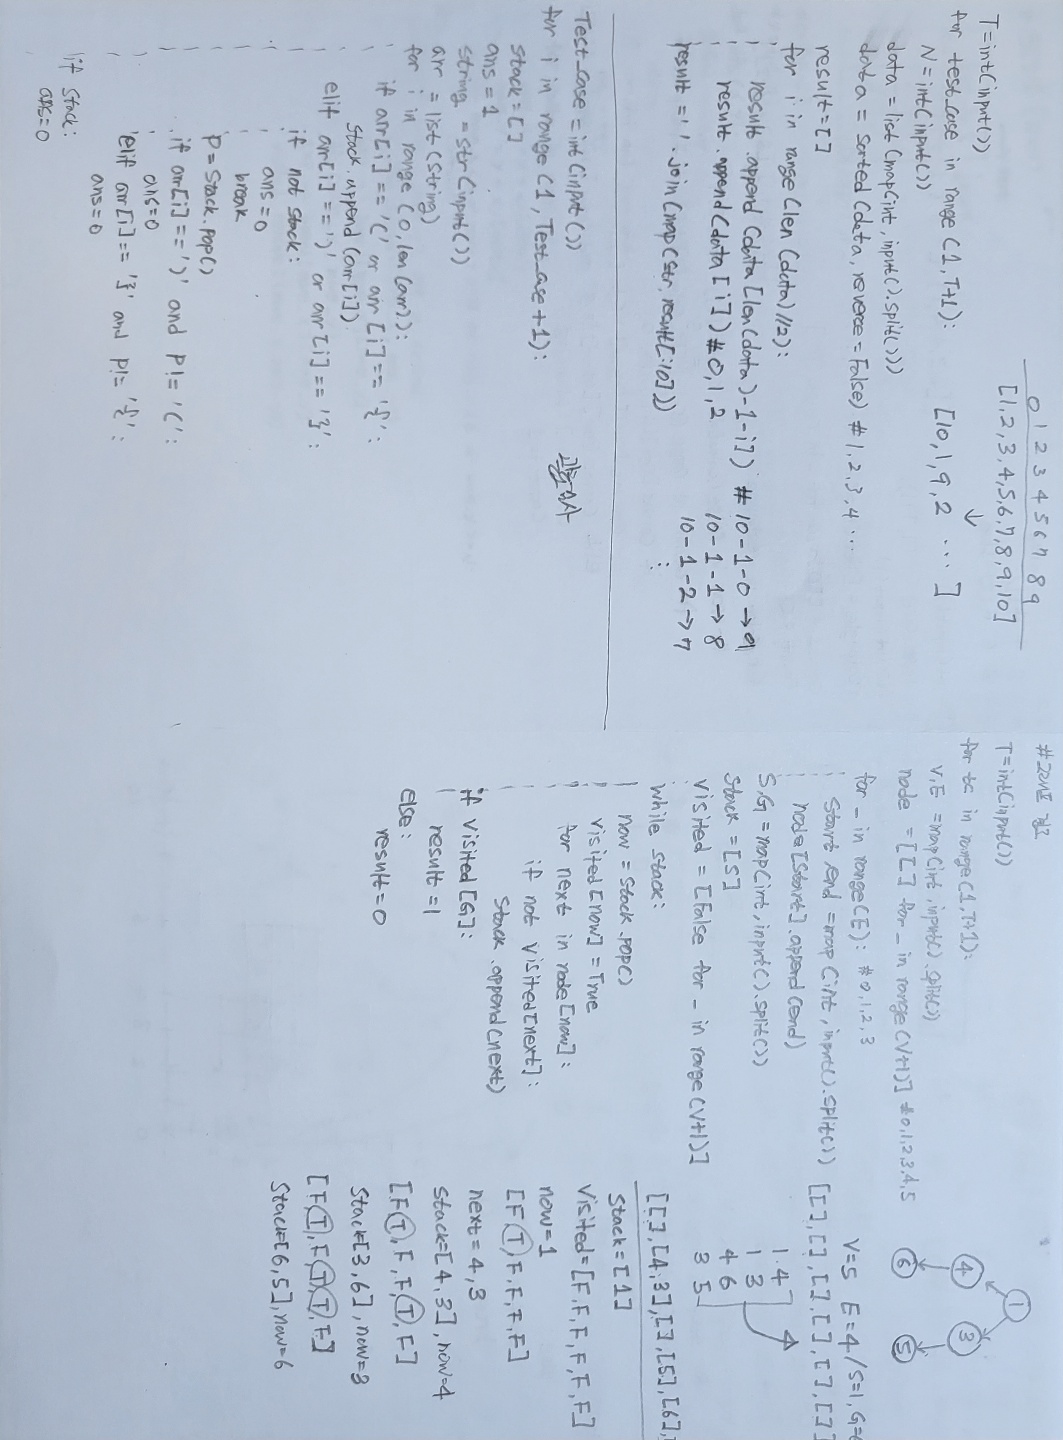 0 1 2 3 4 5 6 7 8 9
[1,2,3,4,5,6,7,8,9,10]
↓
[10,1,9,2 ... ]
T=int(input())
for test_case in range (1,T+1):
N=int(input())
data = list(map(int, input().split()))
data = sorted (data, reverse=False) # 1,2,3,4 ...
result=[]
for i in range (len (data)//2):
result.append (data [len(data)-1-i]) # 10-1-0 → 9
result.append(data[i]) # 0,1,2 10-1-1 → 8
10-1-2 → 7
result = ' '.join(map(str, result[:10]))
Test_case = int(input())
괄호검사
for i in range (1, Test_case+1):
stack=[]
ans=1
string = str(input())
arr = list(string)
for i in range (0, len(arr)):
if arr[i] == '(' or arr[i] == '{':
stack.append (arr[i])
elif arr[i] == ')' or arr[i] == '}':
if not stack:
ans=0
break
P = stack.pop()
if arr[i]==')' and P!= '(':
ans=0
elif arr[i]== '}' and P!= '{':
ans=0
if stack:
ans=0
#그래프 경로
T=int(input())
for tc in range (1,T+1):
V,E =map(int,input().split())
node = [[] for _ in range (V+1)] #0,1,2,3,4,5
for _ in range(E): #0,1,2,3
start,end =map (int, input().split())
node[start].append (end)
S,G =map(int,input().split())
stack = [S]
visited = [False for _ in range (V+1)]
while stack:
now = stack.pop()
visited [now] = True
for next in node[now]:
if not visited[next]:
stack.append(next)
if visited [G]:
result =1
else:
result=0
1
4 3
6 5
V=5 E=4 / S=1, G=6
[[],[],[],[],[],[]]
1 4
1 3
4 6
3 5
[[],[4,3],[],[5],[6],
stack=[1]
visited=[F,F,F,F,F,F]
now=1
[F T, F,F,F,F]
next=4,3
stack=[4,3], now=4
[F T, F, F, T, F]
stack=[3,6], now=3
[F, T, F, T, T, F]
stack=[6,5], now=6